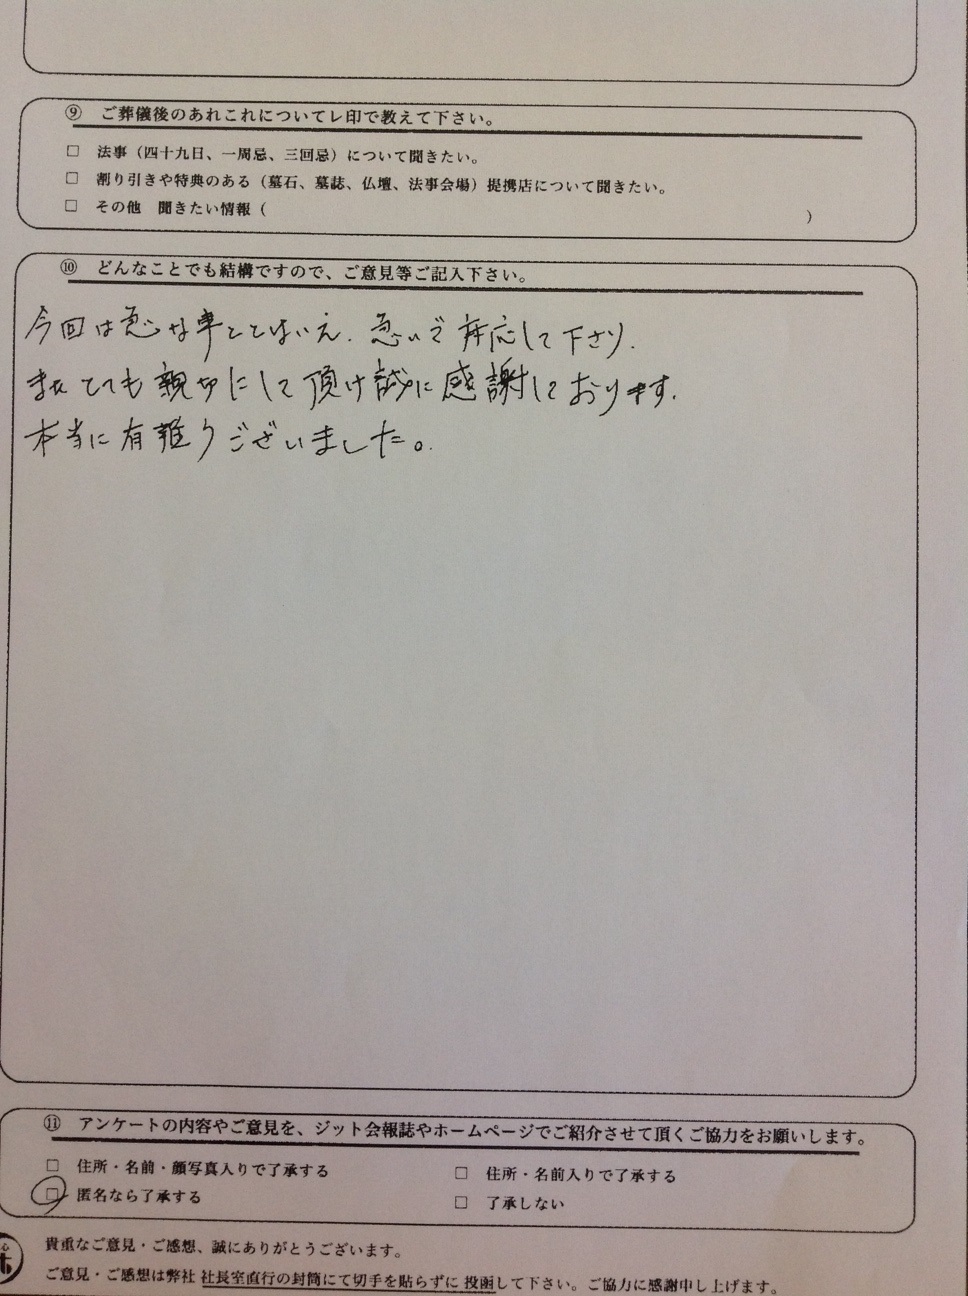 ⑨ ご葬儀後のあれこれについてレ印で教えて下さい。
□ 法事（四十九日、一周忌、三回忌）について聞きたい。
□ 割り引きや特典のある（墓石、墓誌、仏壇、法事会場）提携店について聞きたい。
□ その他 聞きたい情報（ ）
⑩ どんなことでも結構ですので、ご意見等ご記入下さい。
今回は急な事とはいえ、急いで対応して下さり、
またとても親切にして頂け誠に感謝しております。
本当に有難うございました。
⑪ アンケートの内容やご意見を、ジット会報誌やホームページでご紹介させて頂くご協力をお願いします。
□ 住所・名前・顔写真入りで了承する □ 住所・名前入りで了承する
□ 匿名なら了承する □ 了承しない
貴重なご意見・ご感想、誠にありがとうございます。
ご意見・ご感想は弊社 社長室直行の封筒にて切手を貼らずに 投函して下さい。ご協力に感謝申し上げます。